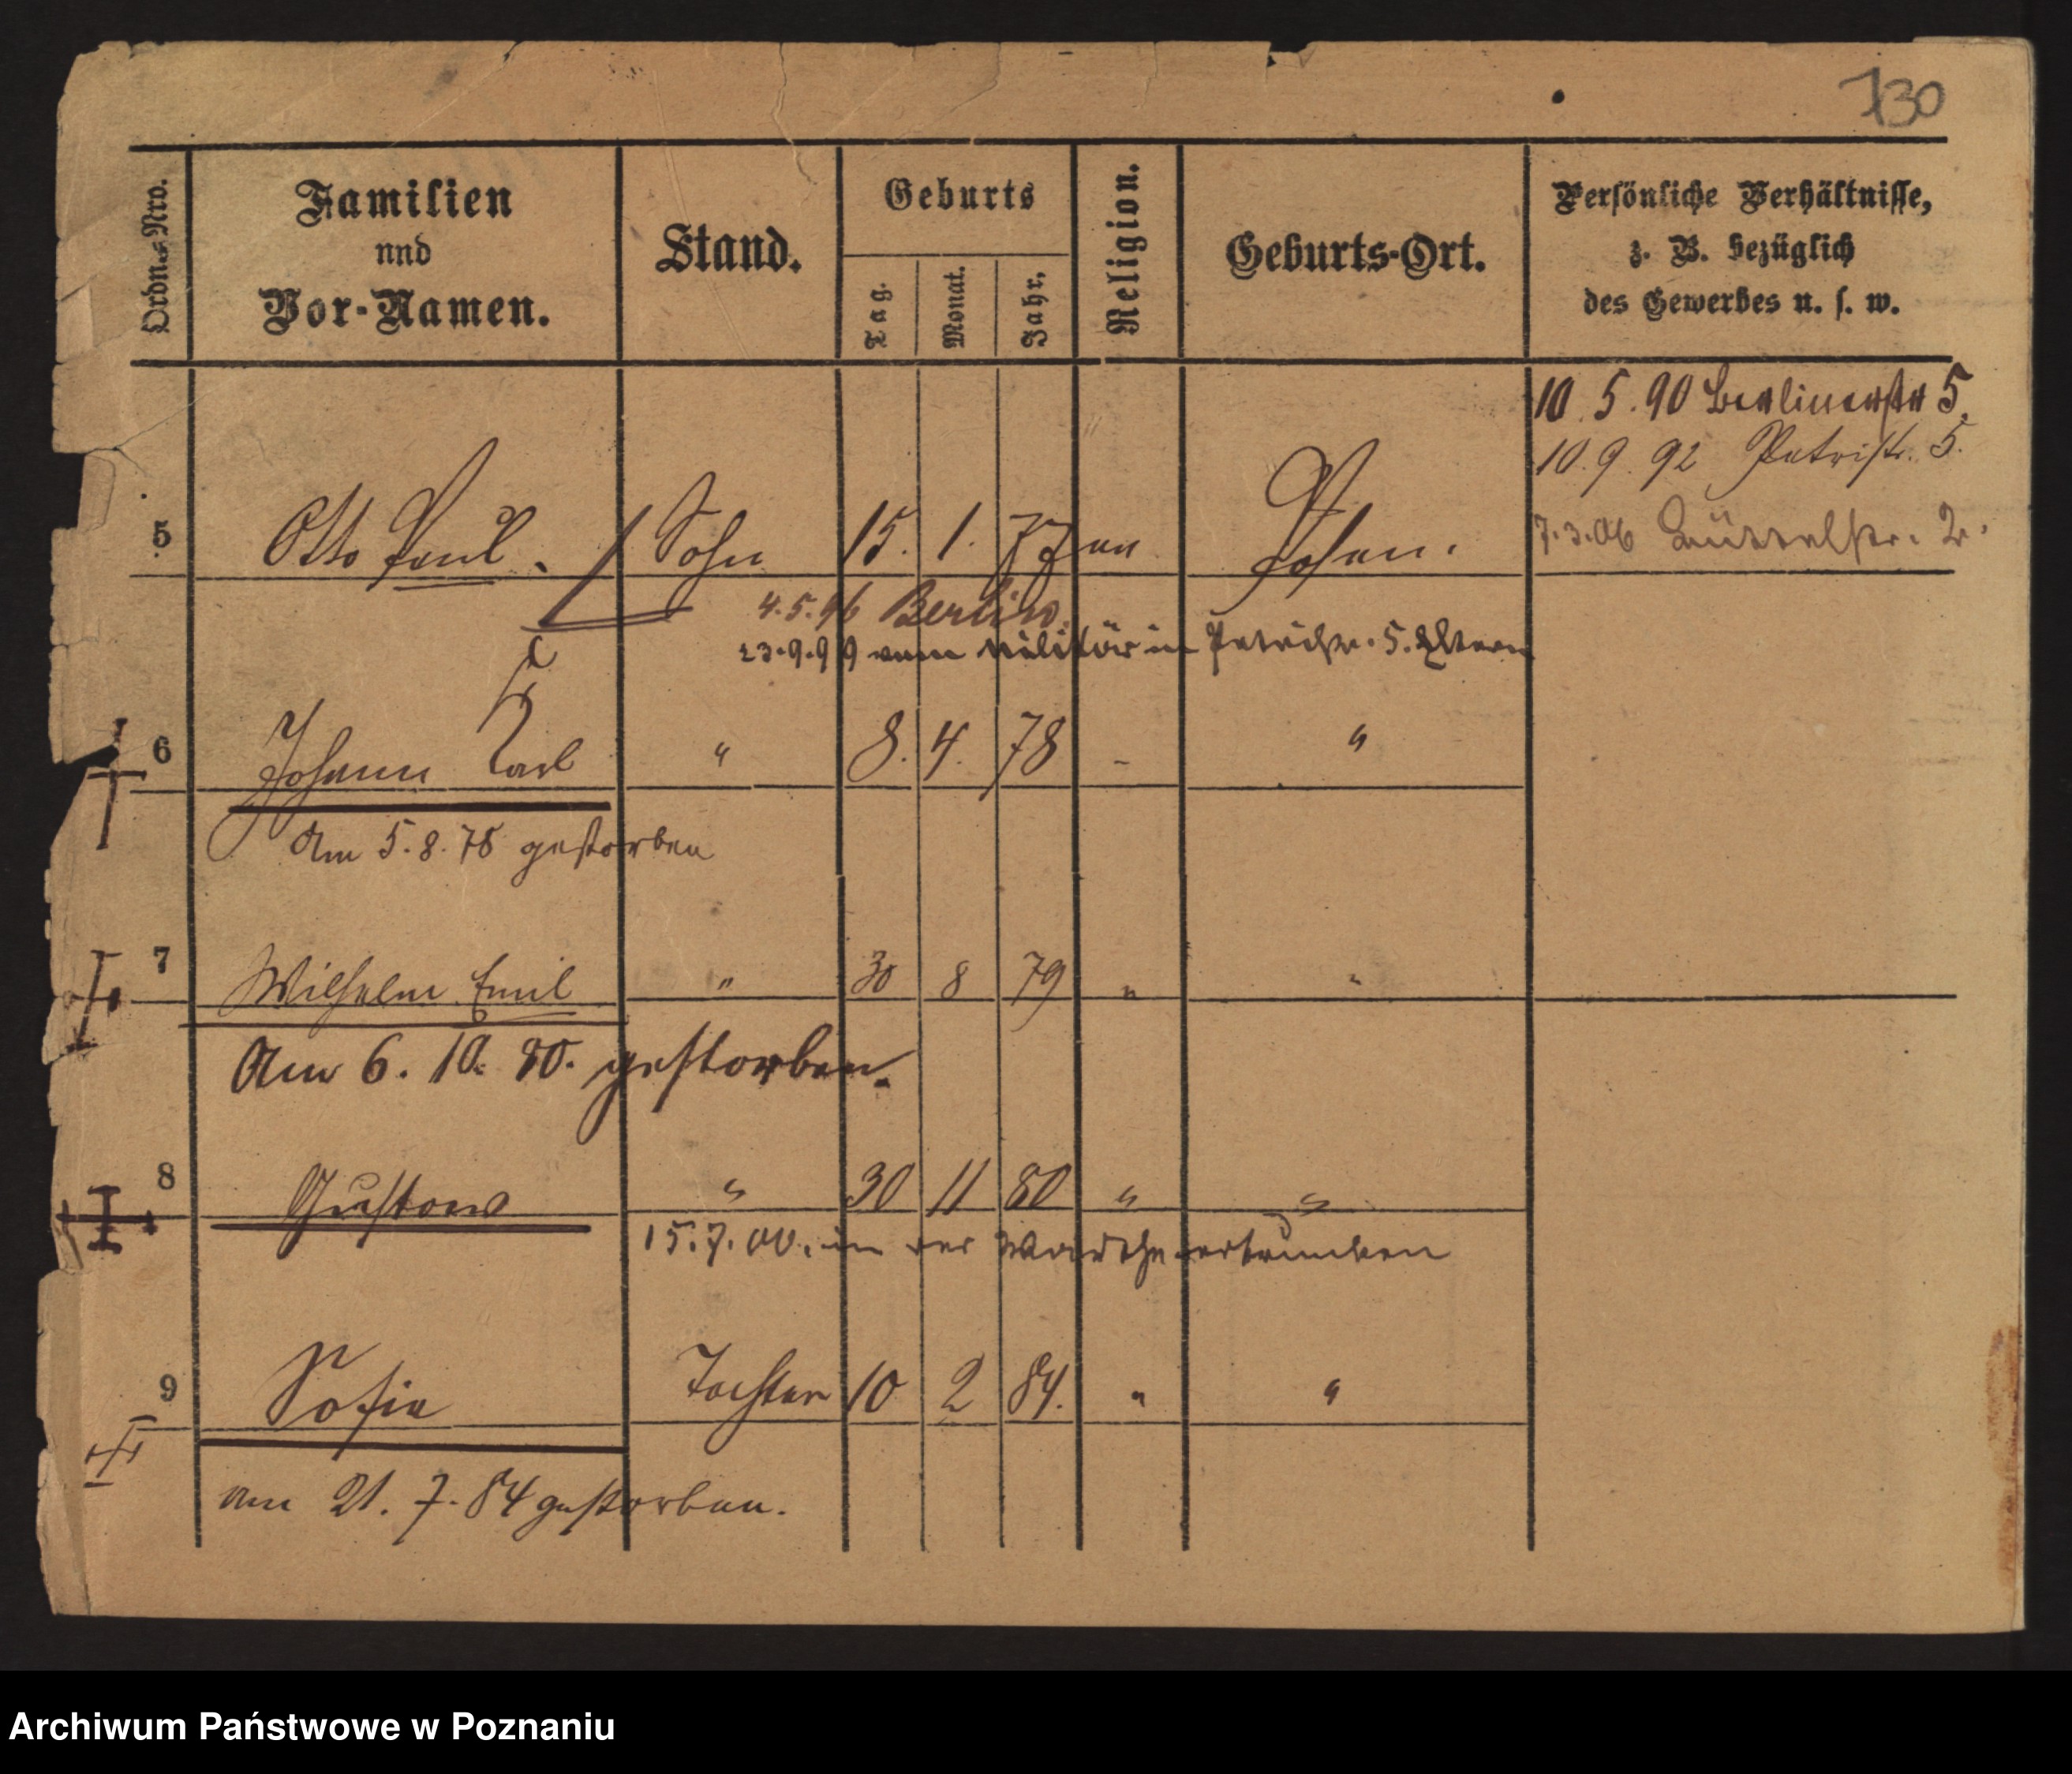 730
Ordn.=Nro.
Familien
nnd
Vor-Namen.
Stand.
Geburts
Tag.
Monat.
Jahr.
Religion.
Geburts-Ort.
Persönliche Verhältnisse,
z. B. bezüglich
des Gewerbes u. s. w.
10. 5. 90 Berlinerstr 5.
10. 9. 92 Petristr. 5.
7.3.06 Büttelstr. 2.
5 Otto Paul. Sohn 15. 1. 77 ev Posen.
4.5.96 Berlin.
23.9.99 vom Militär in Petristr. 5. Eltern
6 Johann Carl " 8. 4. 78 - "
Am 5.8.78 gestorben
7 Wilhelm Emil " 30 8 79 " "
Am 6. 10. 80. gestorben.
8 Gustav " 30 11 80 " "
15.7.00. in der Warthe ertrunken
9 Sofie Tochter 10 2 84. " "
am 21. 7. 84 gestorben.
Archiwum Państwowe w Poznaniu